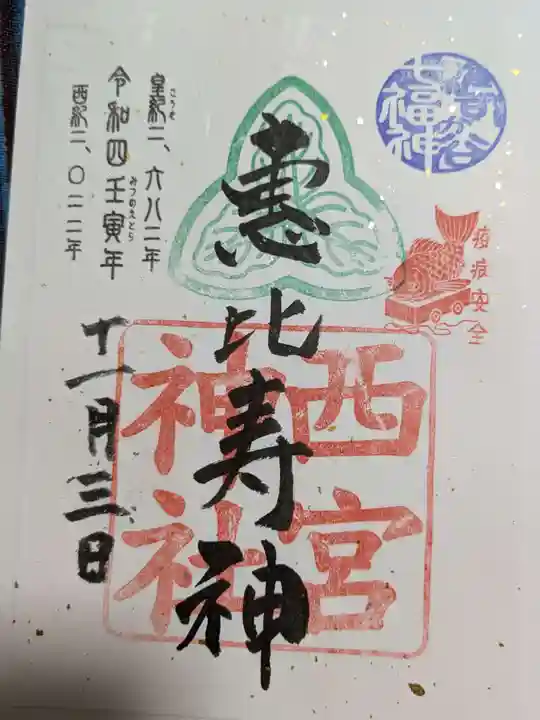 七福神
安全
惠比寿神
西宮
神社
皇紀二、六八二年
令和四壬寅年
みつのえとら
西紀二、〇二二年
十一月三日